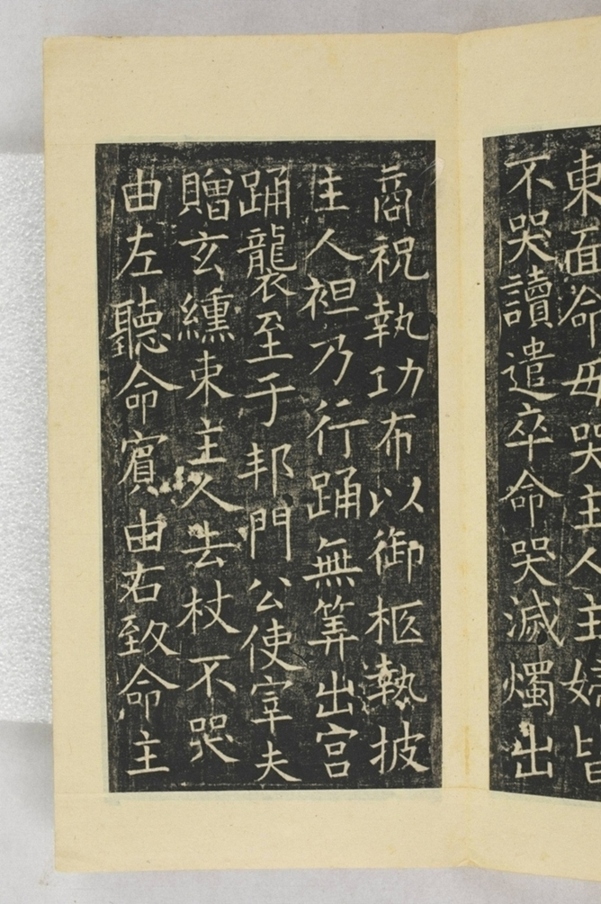 東面命毋哭主人主婦皆
不哭讀遣卒命哭滅燭出
商祝執功布以御柩執披
主人袒乃行踊無筭出宫
踊襲至于邦門公使宰夫
贈玄纁束主人去杖不哭
由左聽命賓由右致命主